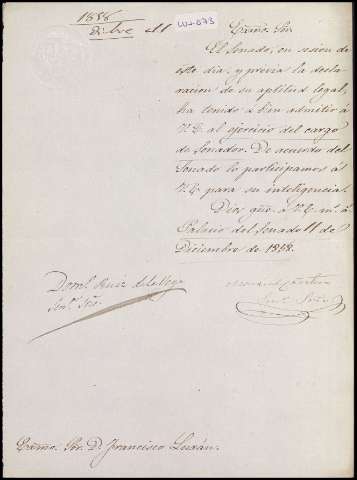 1858
Dibre 11
LUX-073
Exmo. Sor.
El Senado, en sesion de
este dia, y previa la decla-
racion de su aptitud legal,
ha tenido á bien admitir á
V.E. al ejercicio del cargo
de Senador. De acuerdo del
Senado lo participamos á
V.E. para su inteligencia.
Dios gue. á V.E. m. a.
Palacio del Senado 11 de
Diciembre de 1858.
Domo. Ruiz de la Vega
Senr. Srio.
Senr. Srio.
Exmo. Sor. D. Francisco Luxán.